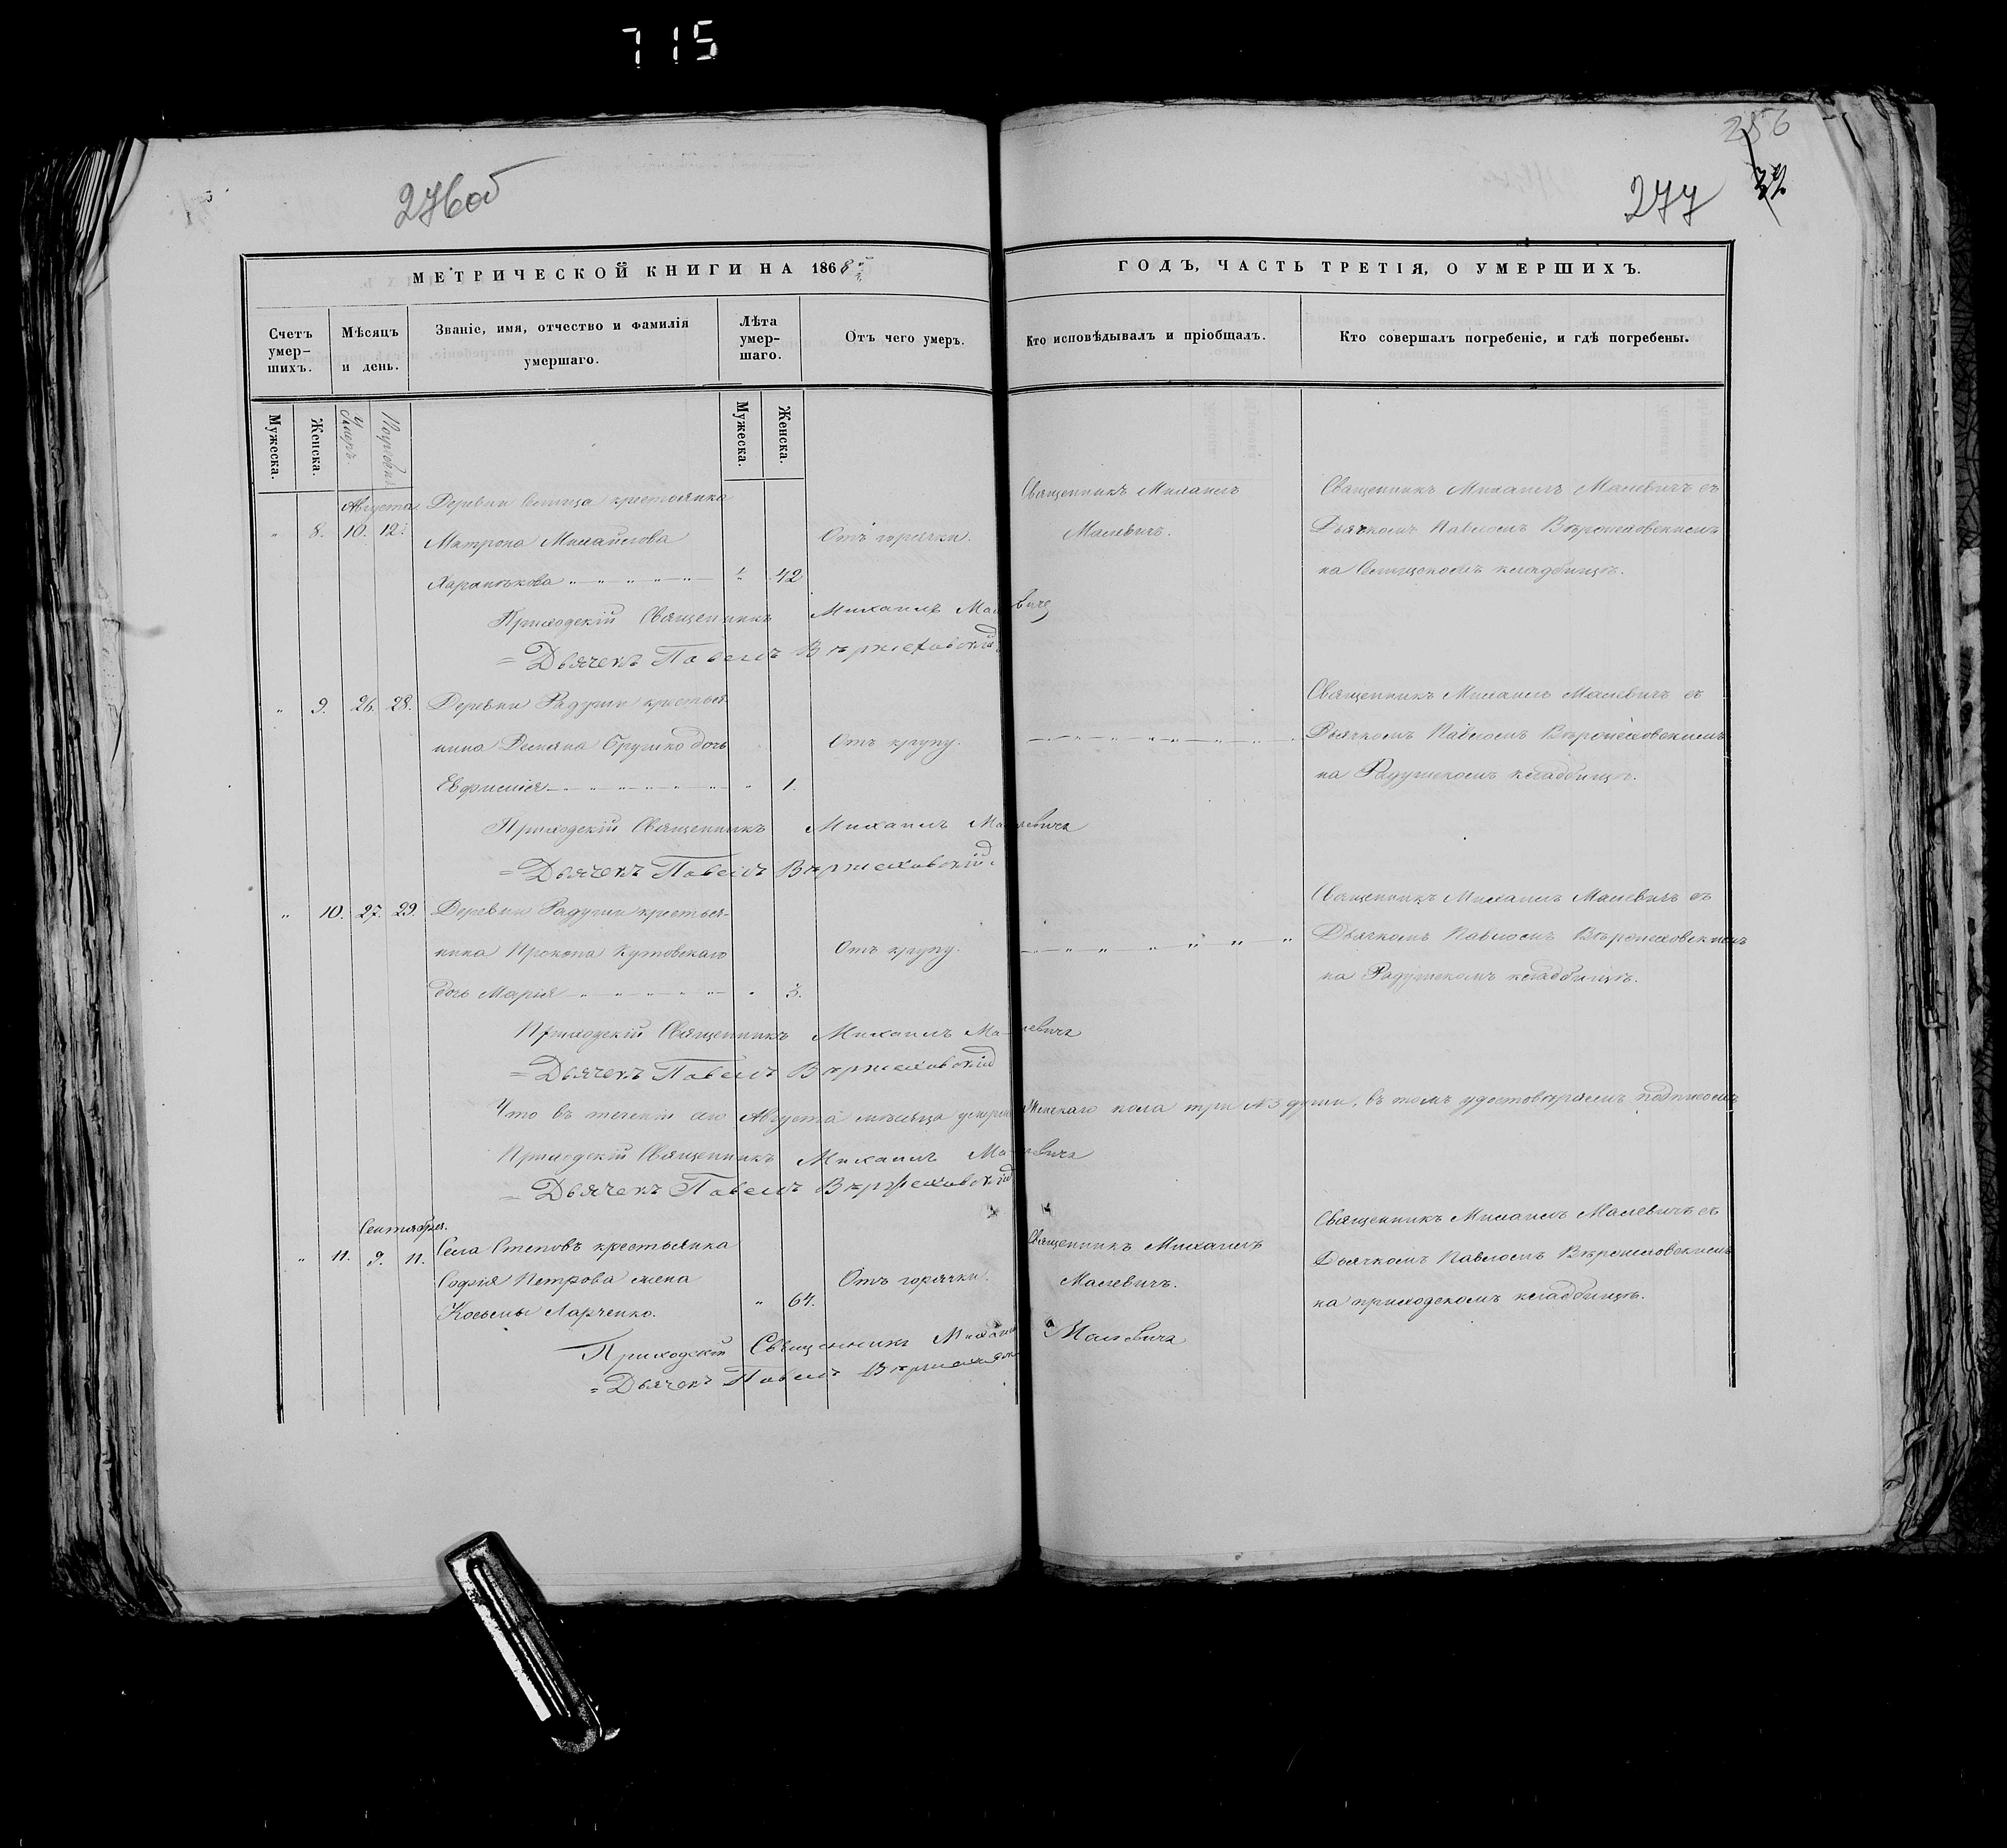 715
276об
256
277
МЕТРИЧЕСКОЙ КНИГИ НА 1868й
ГОДЪ, ЧАСТЬ ТРЕТІЯ, О УМЕРШИХЪ.
Счетъ умер-
шихъ.
Мѣсяцъ
и день.
Званіе, имя, отчество и фамилія
умершаго.
Лѣта
умер-
шаго.
Отъ чего умеръ.
Кто исповѣдывалъ и пріобщалъ.
Кто совершалъ погребеніе, и гдѣ погребены.
Мужеска.
Женска.
Умеръ.
Погребенъ
Мужеска.
Женска.
Августа.
" 8. 10. 12.
Деревни Селища крестьянка
Матрона Михайлова
" 42
Отъ горячки.
Священникъ Михаилъ
Малевичъ.
Священникъ Михаилъ Малевичъ съ
Дьячкомъ Павломъ Вѣржеховскимъ
на Селищскомъ кладбищѣ.
Приходскій Священникъ Михаилъ Малевичъ
= Дьячекъ Павелъ Вѣржеховскій
" 9. 26. 28.
Деревни Радуши крестья-
нина Демяна дочь
Евфимія " 1.
Отъ крупу.
Священникъ Михаилъ Малевичъ съ
Дьячкомъ Павломъ Вѣржеховскимъ
на Радушскомъ кладбищѣ.
Приходскій Священникъ Михаилъ Малевичъ
= Дьячекъ Павелъ Вѣржеховскій.
" 10. 27. 29.
Деревни Радуши крестья-
нина Прокопа Кутовскаго
дочь Марія " 3.
Отъ крупу.
Священникъ Михаилъ Малевичъ съ
Дьячкомъ Павломъ Вѣржеховскимъ
на Радушскомъ кладбищѣ.
Приходскій Священникъ Михаилъ Малевичъ
= Дьячекъ Павелъ Вѣржеховскій
Что въ теченіи сего Августа мѣсяца умерло Женскаго пола три № 3 души, въ томъ удостовѣряемъ подписомъ
Приходскій Священникъ Михаилъ Малевичъ
= Дьячекъ Павелъ Вѣржеховскій
Сентября.
" 11. 9. 11.
Села крестьянка
Софія Петрова жена
Косьмы Ларченко. " 64.
Отъ горячки.
Священникъ Михаилъ
Малевичъ.
Священникъ Михаилъ Малевичъ съ
Дьячкомъ Павломъ Вѣржеховскимъ
на приходскомъ кладбищѣ.
Приходскій Священникъ Михаилъ Малевичъ
= Дьячекъ Павелъ Вѣржеховскій